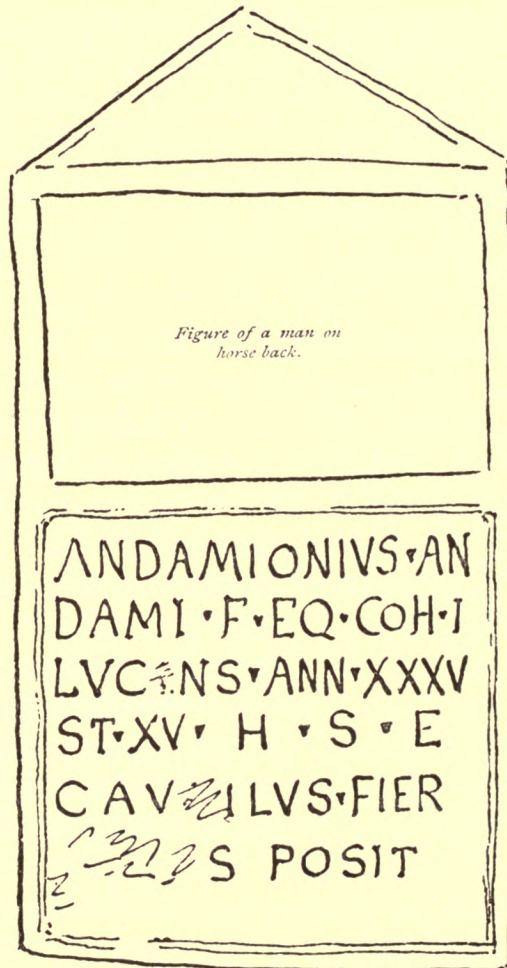 Figure of a man on
horse back.
ANDAMIONIVS·AN
DAMI·F·EQ·COH·I
ANN·XXXV
ST·XV· H · S · E
FIER
POSIT